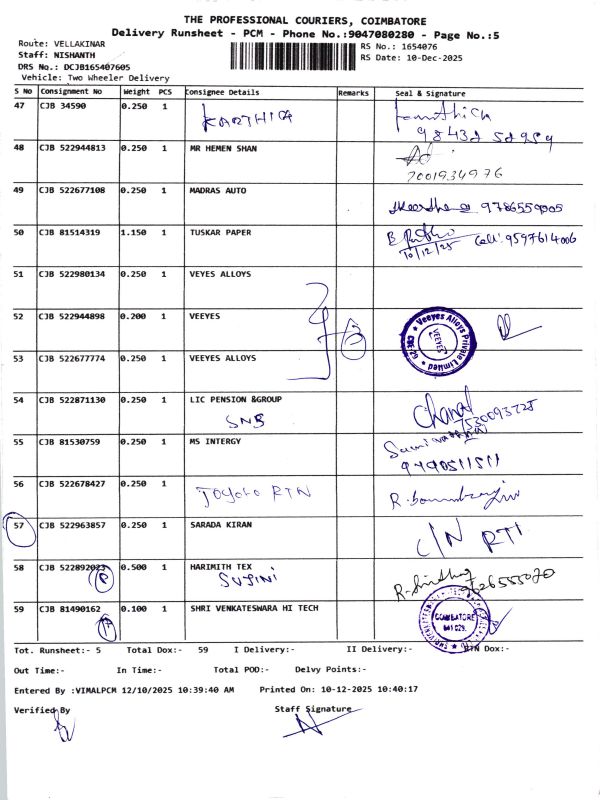 THE PROFESSIONAL COURIERS, COIMBATORE
Delivery Runsheet - PCM - Phone No.:9047080280 - Page No.:5
Route: VELLAKINAR
Staff: NISHANTH
DRS No.: DCJB165407605
Vehicle: Two Wheeler Delivery
RS No.: 1654076
RS Date: 10-Dec-2025
S No Consignment No Weight PCS Consignee Details Remarks Seal & Signature
47 CJB 34590 0.250 1 KARTHIGA
98432 52959
48 CJB 522944813 0.250 1 MR HEMEN SHAN
7001934976
49 CJB 522677108 0.250 1 MADRAS AUTO 9786559005
50 CJB 81514319 1.150 1 TUSKAR PAPER Cell: 9597614006
10/12/25
51 CJB 522980134 0.250 1 VEYES ALLOYS
52 CJB 522944898 0.200 1 VEEYES 3
Veeyes Alloys Private Limited
VEEYES
53 CJB 522677774 0.250 1 VEEYES ALLOYS
54 CJB 522871130 0.250 1 LIC PENSION &GROUP
SNB 7530093728
55 CJB 81530759 0.250 1 MS INTERGY
9440511511
56 CJB 522678427 0.250 1 Toyoto RTN
57 CJB 522963857 0.250 1 SARADA KIRAN C/N RTI
58 CJB 522892023 0.500 1 HARIMITH TEX
P SUJINI
59 CJB 81490162 0.100 1 SHRI VENKATESWARA HI TECH
COIMBATORE
641 029.
Tot. Runsheet:- 5 Total Dox:- 59 I Delivery:- II Delivery:- RTN Dox:-
Out Time:- In Time:- Total POD:- Delvy Points:-
Entered By :VIMALPCM 12/10/2025 10:39:40 AM Printed On: 10-12-2025 10:40:17
Verified By Staff Signature